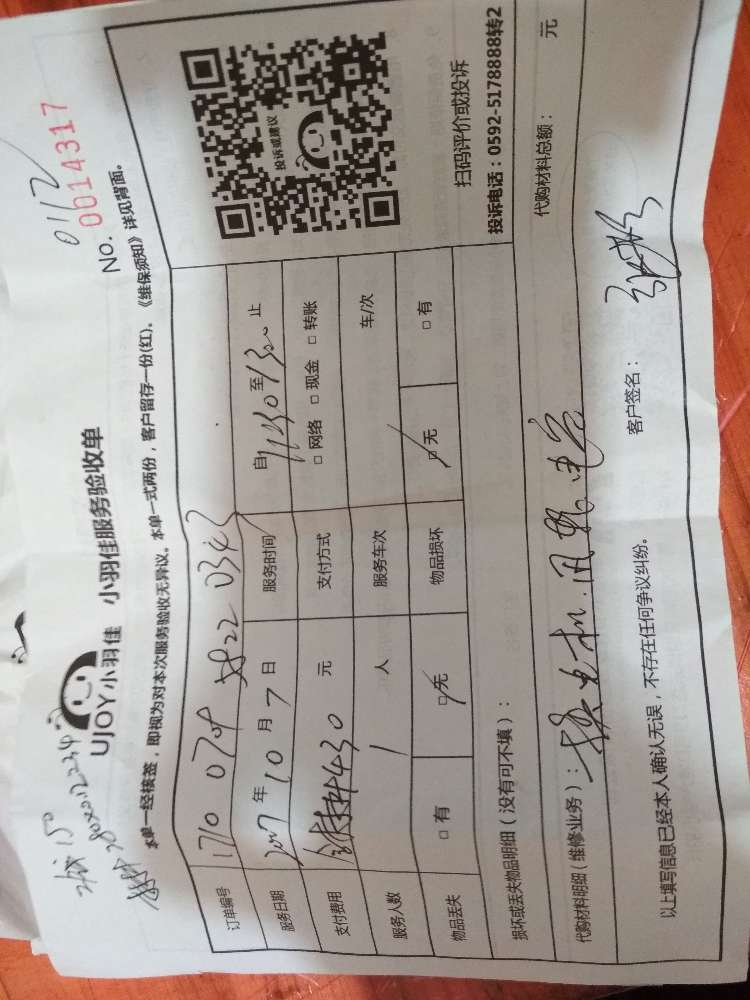 0112
UJOY小羽佳 小羽佳服务验收单
NO. 0014317
本单一经核签，即视为对本次服务验收无异议。本单一式两份，客户留存一份(红)。《维保须知》详见背面。
订单编号 1710 0704 5822 0343
服务日期 2017年10月7日 服务时间 自1140至1300止
支付费用 430元 支付方式 □网络 □现金 □转账
服务人数 1人 服务车次 车/次
物品丢失 □有 □无 物品损坏 □无 □有
投诉或建议
扫码评价或投诉
投诉电话：0592-5178888转2
损坏或丢失物品明细（没有可不填）：
代购材料明细（维修业务）： 代购材料总额： 元
换电机
以上填写信息已经本人确认无误，不存在任何争议纠纷。 客户签名：